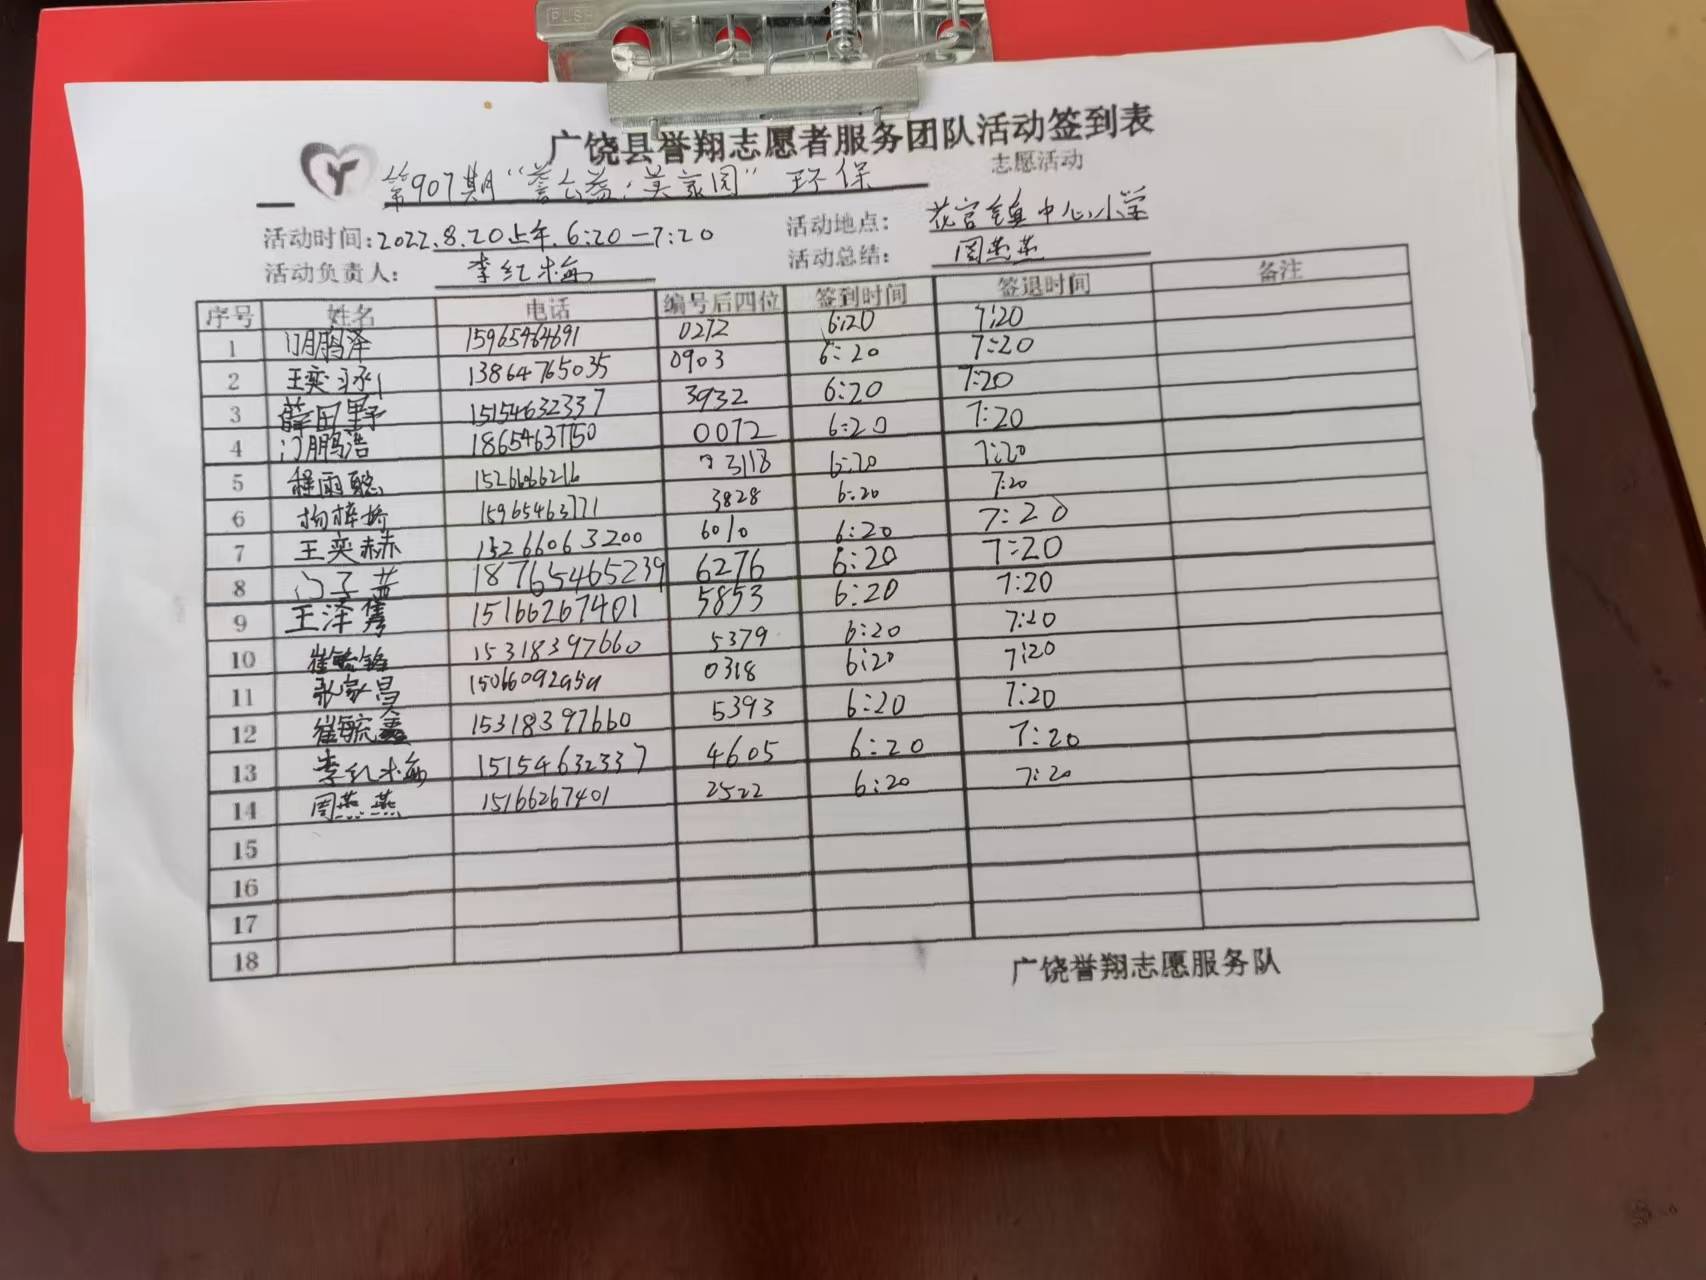 PUSH
广饶县誉翔志愿者服务团队活动签到表
第907期“誉公益·美家园”环保 志愿活动
活动时间:2022.8.20上午.6:20—7:20 活动地点: 花官镇中心小学
活动负责人: 李红梅 活动总结: 周燕燕
序号 姓名 电话 编号后四位 签到时间 签退时间 备注
1 门鹏泽 15965464691 0272 6:20 7:20
2 王奕 13864765035 0903 6:20 7:20
3 薛田野 15154632337 3932 6:20 7:20
4 门鹏浩 18654637150 0072 6:20 7:20
5 程雨聪 15266066216 3118 6:20 7:20
6 杨梓 15965463771 3828 6:20 7:20
7 王奕赫 15266063200 6010 6:20 7:20
8 门子芸 18765465239 6276 6:20 7:20
9 王泽隽 15166267401 5853 6:20 7:20
10 崔毓铭 15318397660 5379 6:20 7:20
11 张家昌 0318 6:20 7:20
12 崔毓鑫 15318397660 5393 6:20 7:20
13 李红梅 15154632337 4605 6:20 7:20
14 周燕燕 15166267401 2522 6:20 7:20
15
16
17
18
广饶誉翔志愿服务队